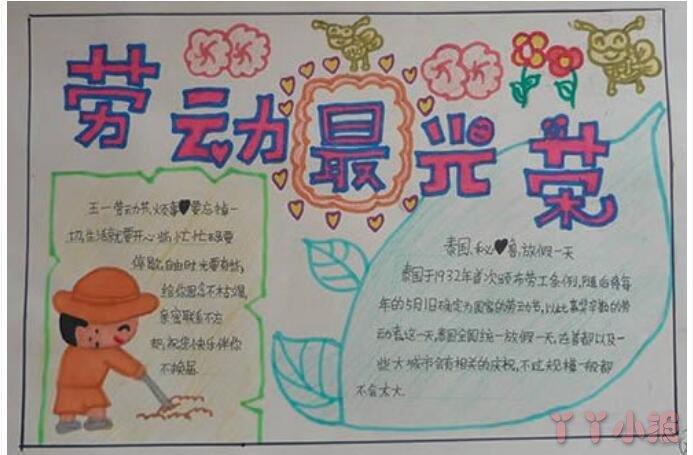 五五
五五
劳动最光荣
五一劳动节,烦事♥要忘掉一
切,生活就要开心些,忙忙碌碌要
停歇,自由时光要有些,
给你思念不枯竭,
亲密联系不
却,祝您快乐伴你
不换届.
泰国、秘♥鲁,放假一天
泰国于1932年首次颁布劳工条例,随后将每
年的5月1日确定为国家的劳动节,以此嘉奖辛勤的劳
动者,这一天,泰国全国统一放假一天,在首都以及一
些大城市会有相关的庆祝,不过规模一般都
不会太大.
丫丫小狼